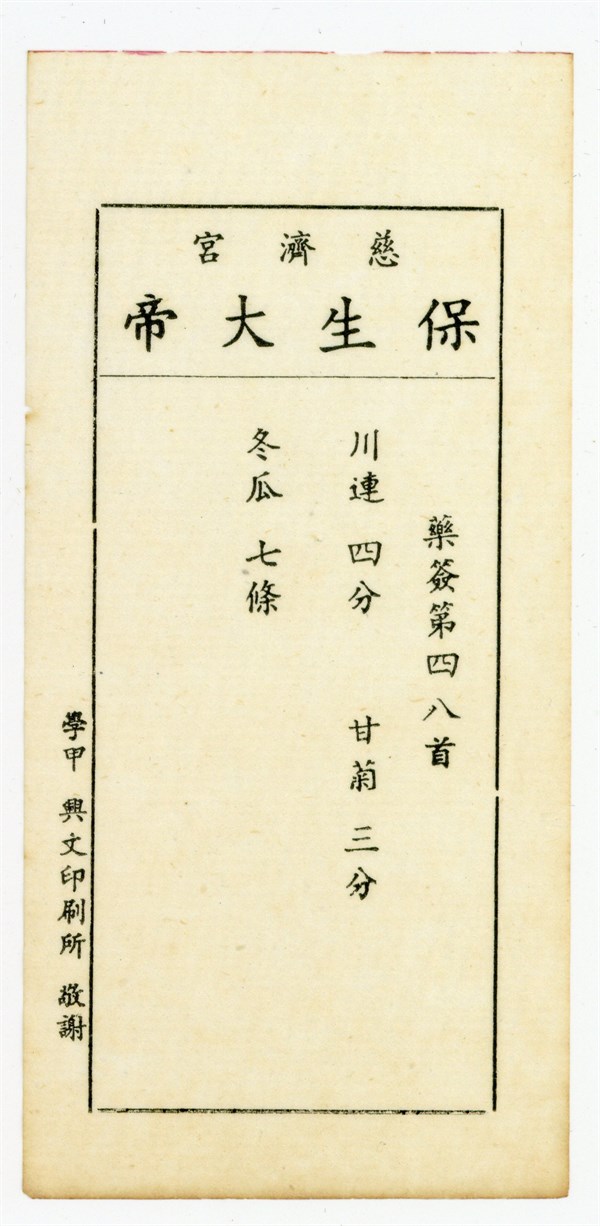 慈濟宮
保生大帝
藥簽第四八首
川連 四分 甘菊 三分
冬瓜 七條
學甲 興文印刷所 敬謝